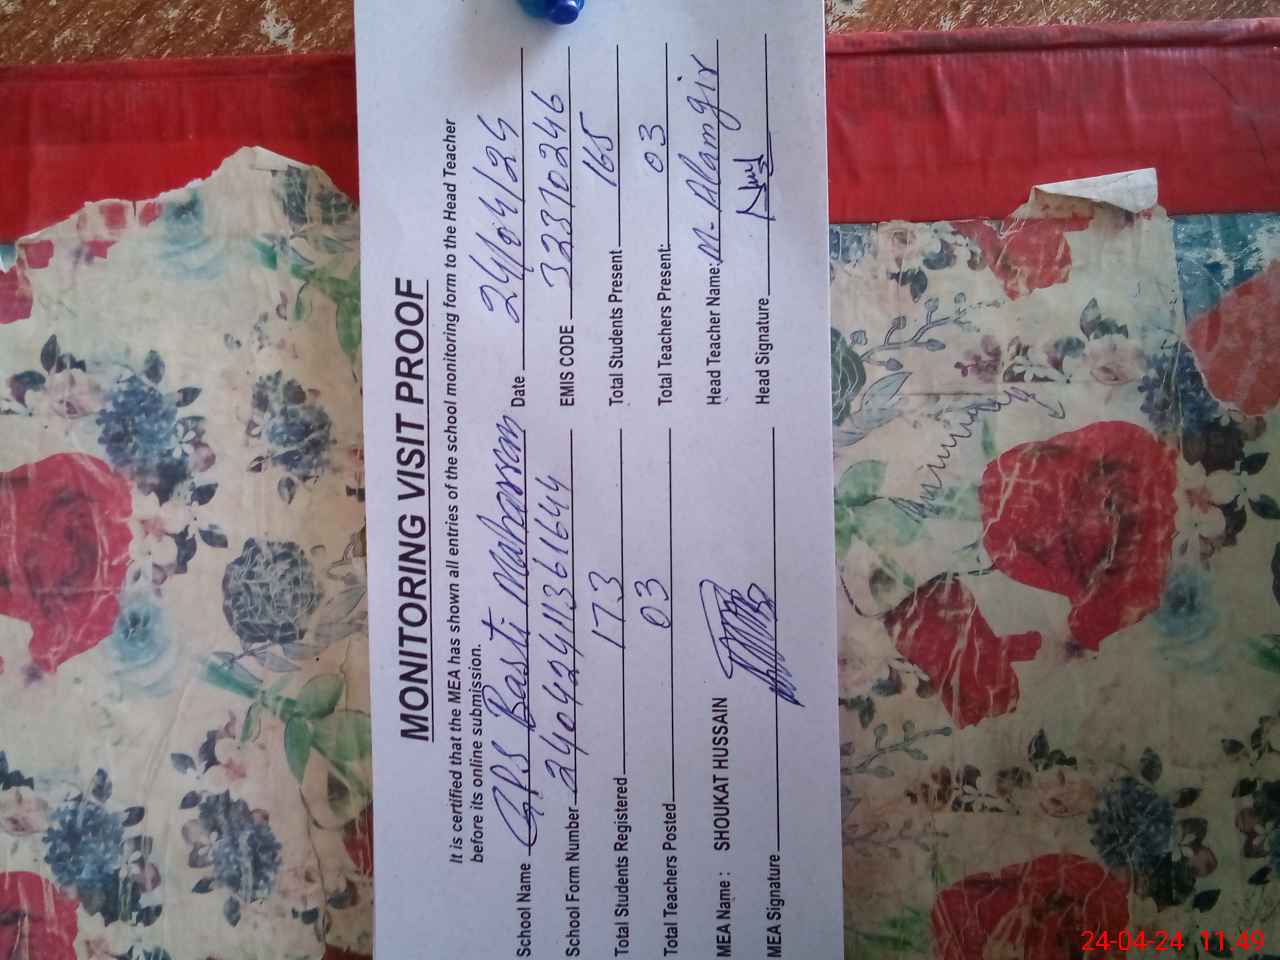 MONITORING VISIT PROOF
It is certified that the MEA has shown all entries of the school monitoring form to the Head Teacher
before its online submission.
School Name GPS Basti Mahassan Date 24/04/24
School Form Number 240424113616144 EMIS CODE 32310246
Total Students Registered 173 Total Students Present 165
Total Teachers Posted 03 Total Teachers Present: 03
MEA Name : SHOUKAT HUSSAIN Head Teacher Name: M. Alamgir
MEA Signature Head Signature
24-04-24 11.49